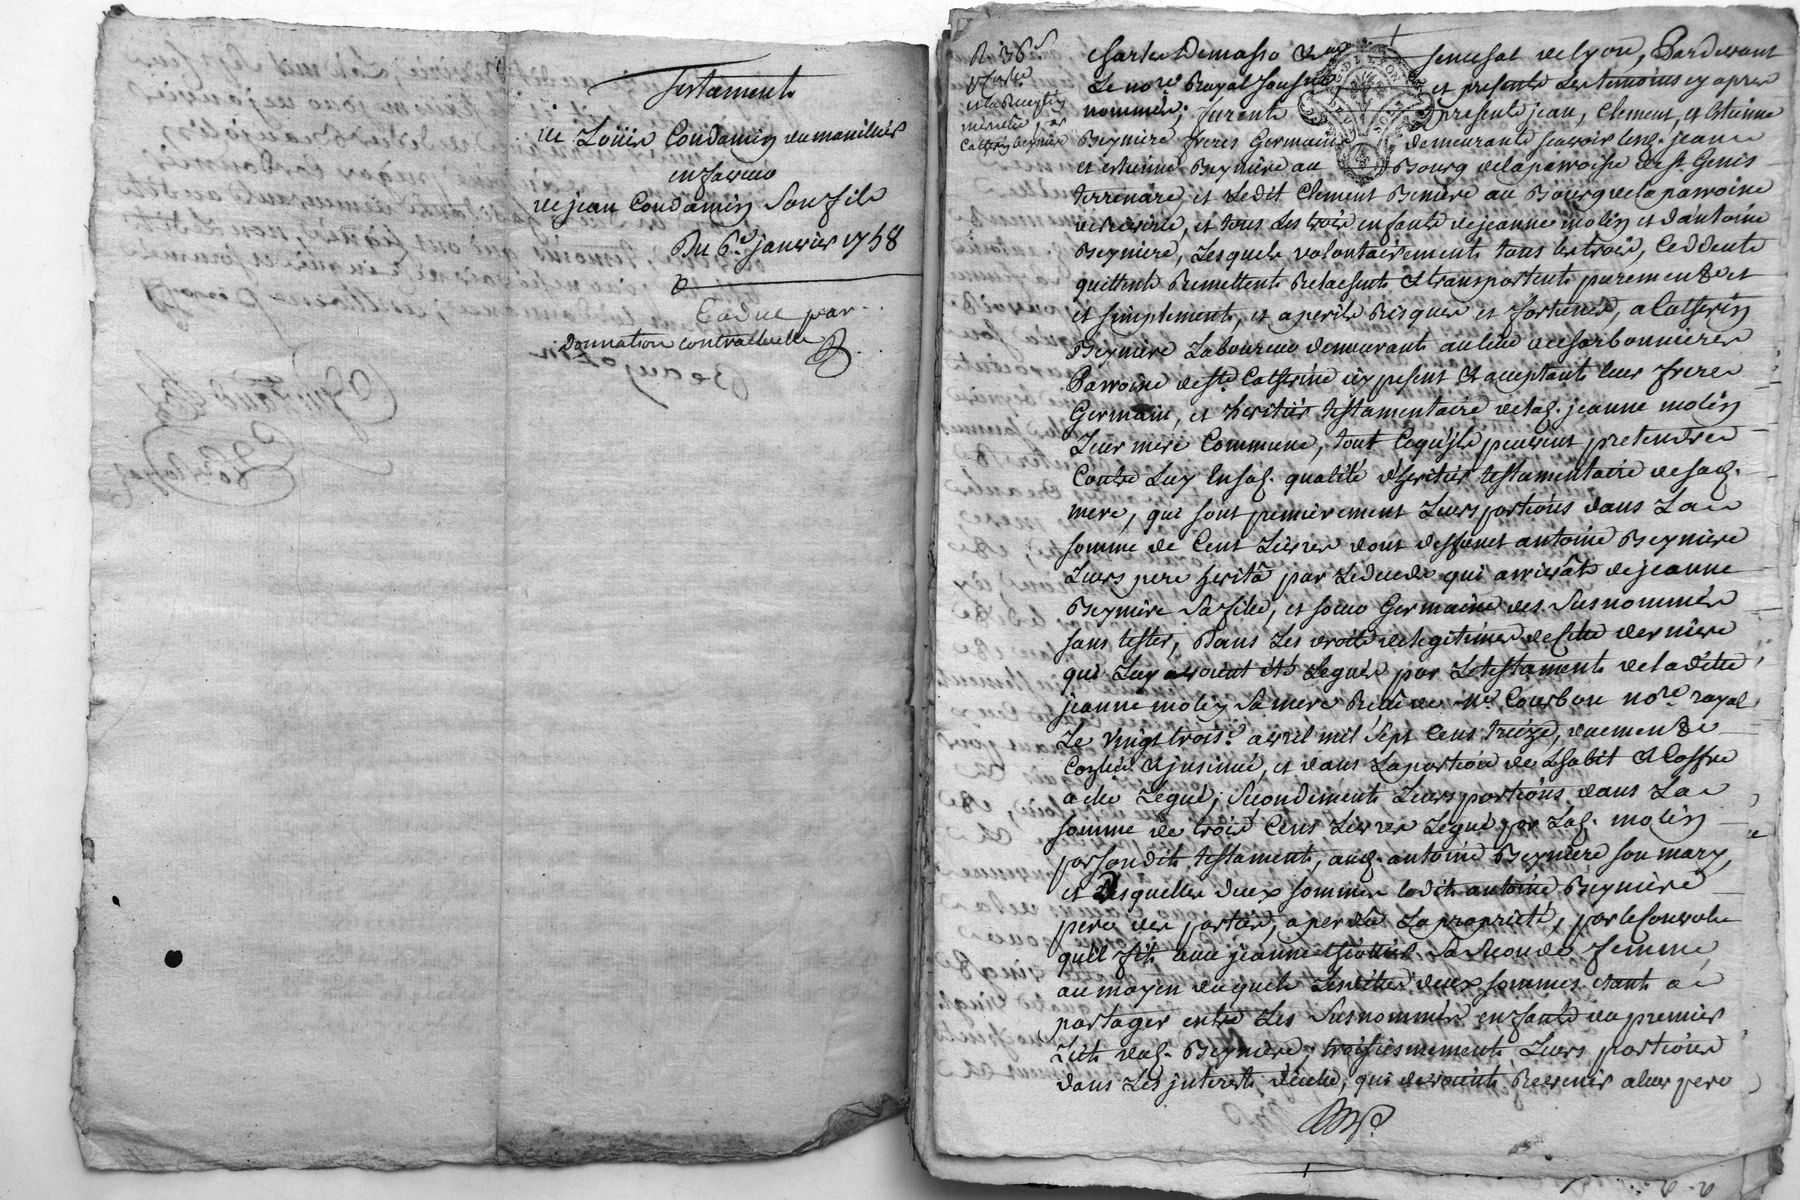 Testament
de Loüis Condamin du moniliér
en faveur
de jean Condamin Son fils
Du 6e. janvier 1758
Caduc par
donnation contractuelle
Beaujolin
R. 36 s
Catherin beyniere
Charles Demasso
senechal de Lyon, Pardevant
Le nore. Royal Soussigné
et presents Les temoins cy apres
nommés; furent
presents jean, Clement, et Estienne
Beyniere freres Germains
demeurants sçavoir lesq. jean
et estienne Beyniere au
Bourg de la parroisse de st. Genis
terrenoire, et Ledit Clement Beniere au Bourg de la parroisse
et tous Les trois enfants de jeanne molin et d'antoine
Beyniere, Lesquels volontairement tous les trois, Ceddent
quittent Remettent Relachent et transportent purement et
et simplement, et a perils Risques et fortunes, a Catherin
Beyniere Laboureur demeurant au lieu de Charbonnieres
Parroisse de ste. Catherine icy present et acceptant leur frere
Germain, et heritier testamentaire de laq. jeanne molin
Leur mere Commune, tout Cequ'ils peuvent pretendre
Contre Luy En saq. qualité d'heritier testamentaire de saq.
mere, qui sont premierement Leurs portions dans La
somme de Cent Livres dont deffunt antoine Beyniere
Leurs pere herita par Le deceds qui arrivat de jeanne
Beyniere Sa fille, et soeur Germaine des Susnommés
sans tester, Dans Les droits de legitime de Cette derniere
qui Luy avoient été Legués par Le testament de ladite
jeanne molin Sa mere Reçu de Me. Courbon nore. royal
Le vingt trois.e avril mil Sept Cens treize, duement
Controllé et insinué, et dans La portion de L'habit et Coffre
a elle Legué; Secondement Leurs portions dans La
somme de trois Cens Livres Legué par Laq. molin
par sondit testament, audq. antoine Beyniere son mary,
et Desquelles deux sommes ledit antoine Beyniere
pere des parties, a perdu La proprieté, par le Convol
qu'il fit avec jeanne Sa Seconde femme,
au moyen duquel Lesdittes deux sommes etant a
partager entre Les Susnommés enfants du premier
Lit dudq. Beyniere; troisiesmement Leurs portions
dans Les interests d'icelle, qui devoient Revenir a leur pere